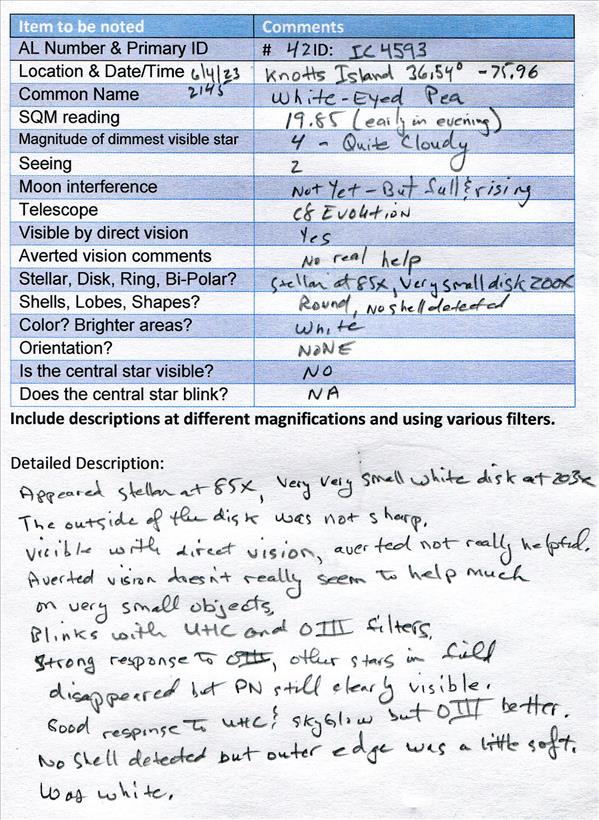 Item to be noted Comments
AL Number & Primary ID # 42 ID: IC 4593
Location & Date/Time 6/4/23 Knotts Island 36.54° -75.96
Common Name 2145 White-Eyed Pea
SQM reading 19.85 (early in evening)
Magnitude of dimmest visible star 4 - Quite Cloudy
Seeing 2
Moon interference Not Yet - But full & rising
Telescope C8 Evolution
Visible by direct vision Yes
Averted vision comments No real help
Stellar, Disk, Ring, Bi-Polar? Stellar at 85x, Very small disk 200x
Shells, Lobes, Shapes? Round, No shell detected
Color? Brighter areas? White
Orientation? NONE
Is the central star visible? NO
Does the central star blink? NA
Include descriptions at different magnifications and using various filters.
Detailed Description:
Appeared stellar at 85x, Very very small white disk at 203x
The outside of the disk was not sharp.
Visible with direct vision, averted not really helpful.
Averted vision doesn't really seem to help much
on very small objects.
Blinks with UHC and OIII filters.
Strong response to OIII, other stars in field
disappeared but PN still clearly visible.
Good response to UHC & skyglow but OIII better.
No shell detected but outer edge was a little soft.
Was white.